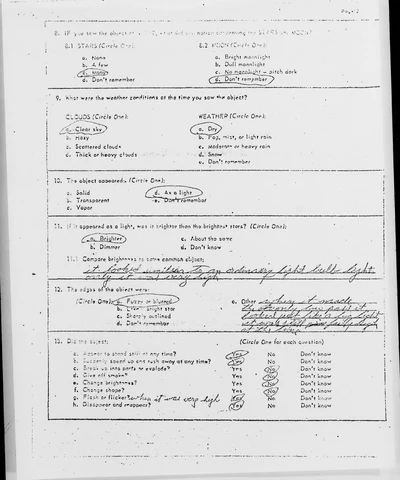 8. IF you saw the object at
8.1 STARS (Circle One): 8.2 MOON (Circle One):
a. None a. Bright moonlight
b. A few b. Dull moonlight
c. Many c. No moonlight – pitch dark
d. Don't remember d. Don't remember
9. What were the weather conditions at the time you saw the object?
CLOUDS (Circle One): WEATHER (Circle One):
a. Clear sky a. Dry
b. Hazy b. Fog, mist, or light rain
c. Scattered clouds c. Moderate or heavy rain
d. Thick or heavy clouds d. Snow
e. Don't remember
10. The object appeared: (Circle One):
a. Solid d. As a light
b. Transparent e. Don't remember
c. Vapor
11. If it appeared as a light, was it brighter than the brightest stars? (Circle One):
a. Brighter c. About the same
b. Dimmer d. Don't know
11.1 Compare brightness to some common object:
it looked similar to an ordinary light bulb light
only it was very high
12. The edges of the object were:
(Circle One): a. Fuzzy or blurred e. Other when it made
b. Like a bright star
c. Sharply outlined
d. Don't remember at this time
13. Did the object: (Circle One for each question)
a. Appear to stand still at any time? Yes No Don't know
b. Suddenly speed up and rush away at any time? Yes No Don't know
c. Break up into parts or explode? Yes No Don't know
d. Give off smoke? Yes No Don't know
e. Change brightness? Yes No Don't know
f. Change shape? Yes No Don't know
g. Flash or flicker? when it was very high Yes No Don't know
h. Disappear and reappear? Yes No Don't know